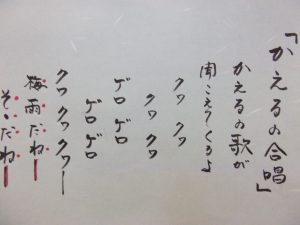 「かえるの合唱」
かえるの歌が
聞こえてくるよ
クワ クワ
クワ クワ
ゲロ ゲロ
ゲロ ゲロ
クワ クワ クワー
梅雨だねー
そ〜だねー